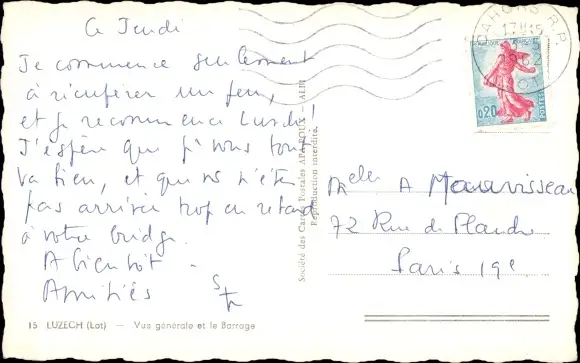 Ce Jeudi
Je commence seulement
à récupérer un peu,
et je recommence Lundi!
J'espère que pr vous tout
va bien, et que vs n'êtes
pas arrivée trop en retard
à votre bridge.
A bientôt.
Amitiés
CAHORS R.P.
REPUBLIQUE FRANÇAISE
0,20
POSTES
Société des Cartes Postales APA-POUX — ALBI
Reproduction interdite.
Melle A Mauvisseau
72 Rue de Flandre
Paris 19e
15 LUZECH (Lot) — Vue générale et le Barrage